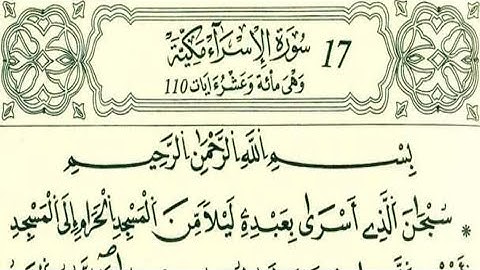 17 سُورَةُ الْإِسْرَآءِ مَكِّيَّة
وَهْىَ مِائَة وَعَشْرُ ءَايَات 110
بِسْمِ اللَّهِ الرَّحْمَٰنِ الرَّحِيمِ
* سُبْحَٰنَ الَّذِے أَسْرَىٰ بِعَبْدِهِ لَيْلاً مِّنَ الْمَسْجِدِ الْحَرَامِ إِلَى الْمَسْجِدِ